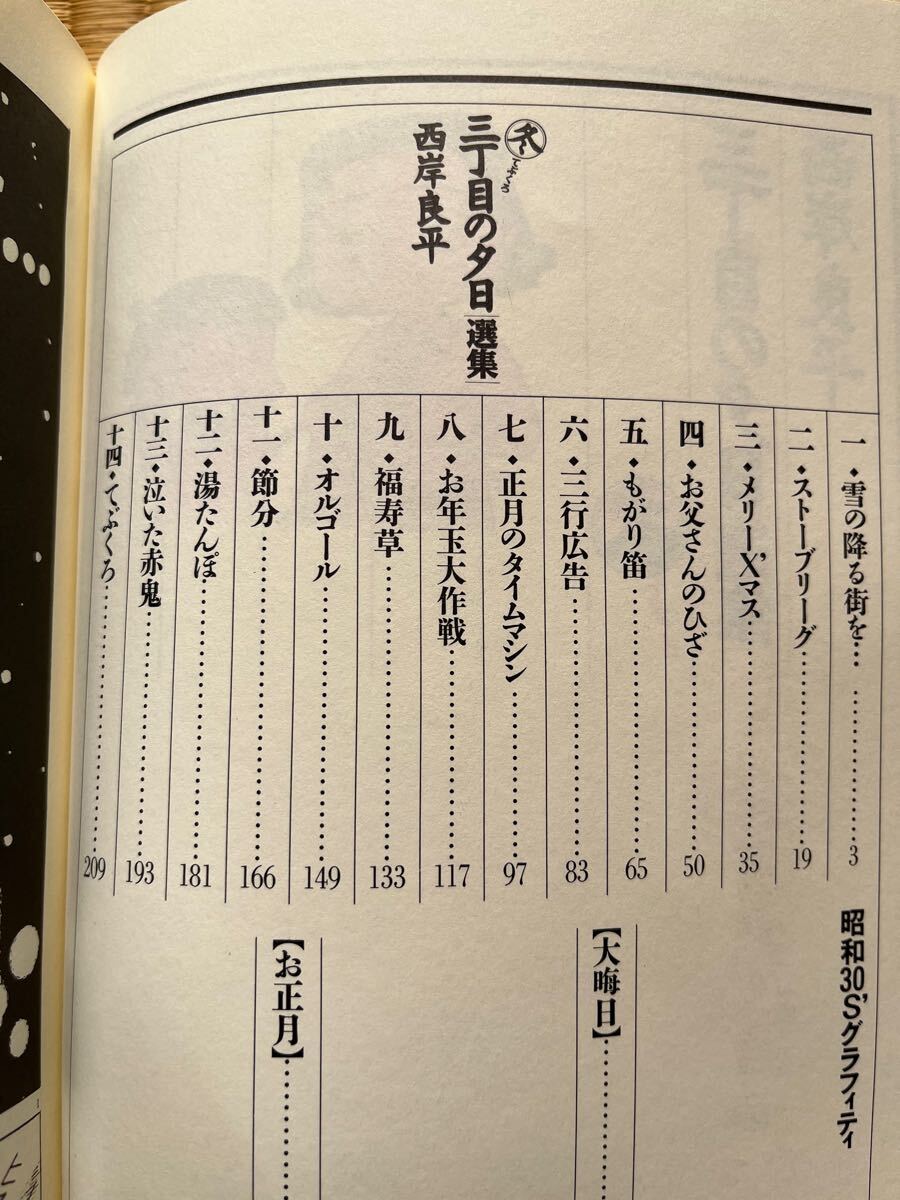 冬
てぶくろ
三丁目の夕日
選集
西岸良平
一◆雪の降る街を…………………3
二◆ストーブリーグ…………………19
三◆メリーX'マス…………………35
四◆お父さんのひざ…………………50
五◆もがり笛…………………65
六◆三行広告…………………83
七◆正月のタイムマシン…………………97
八◆お年玉大作戦…………………117
九◆福寿草…………………133
十◆オルゴール…………………149
十一◆節分…………………166
十二◆湯たんぽ…………………181
十三◆泣いた赤鬼…………………193
十四◆てぶくろ…………………209
昭和30S'グラフィティ
【大晦日】…………
【お正月】…………